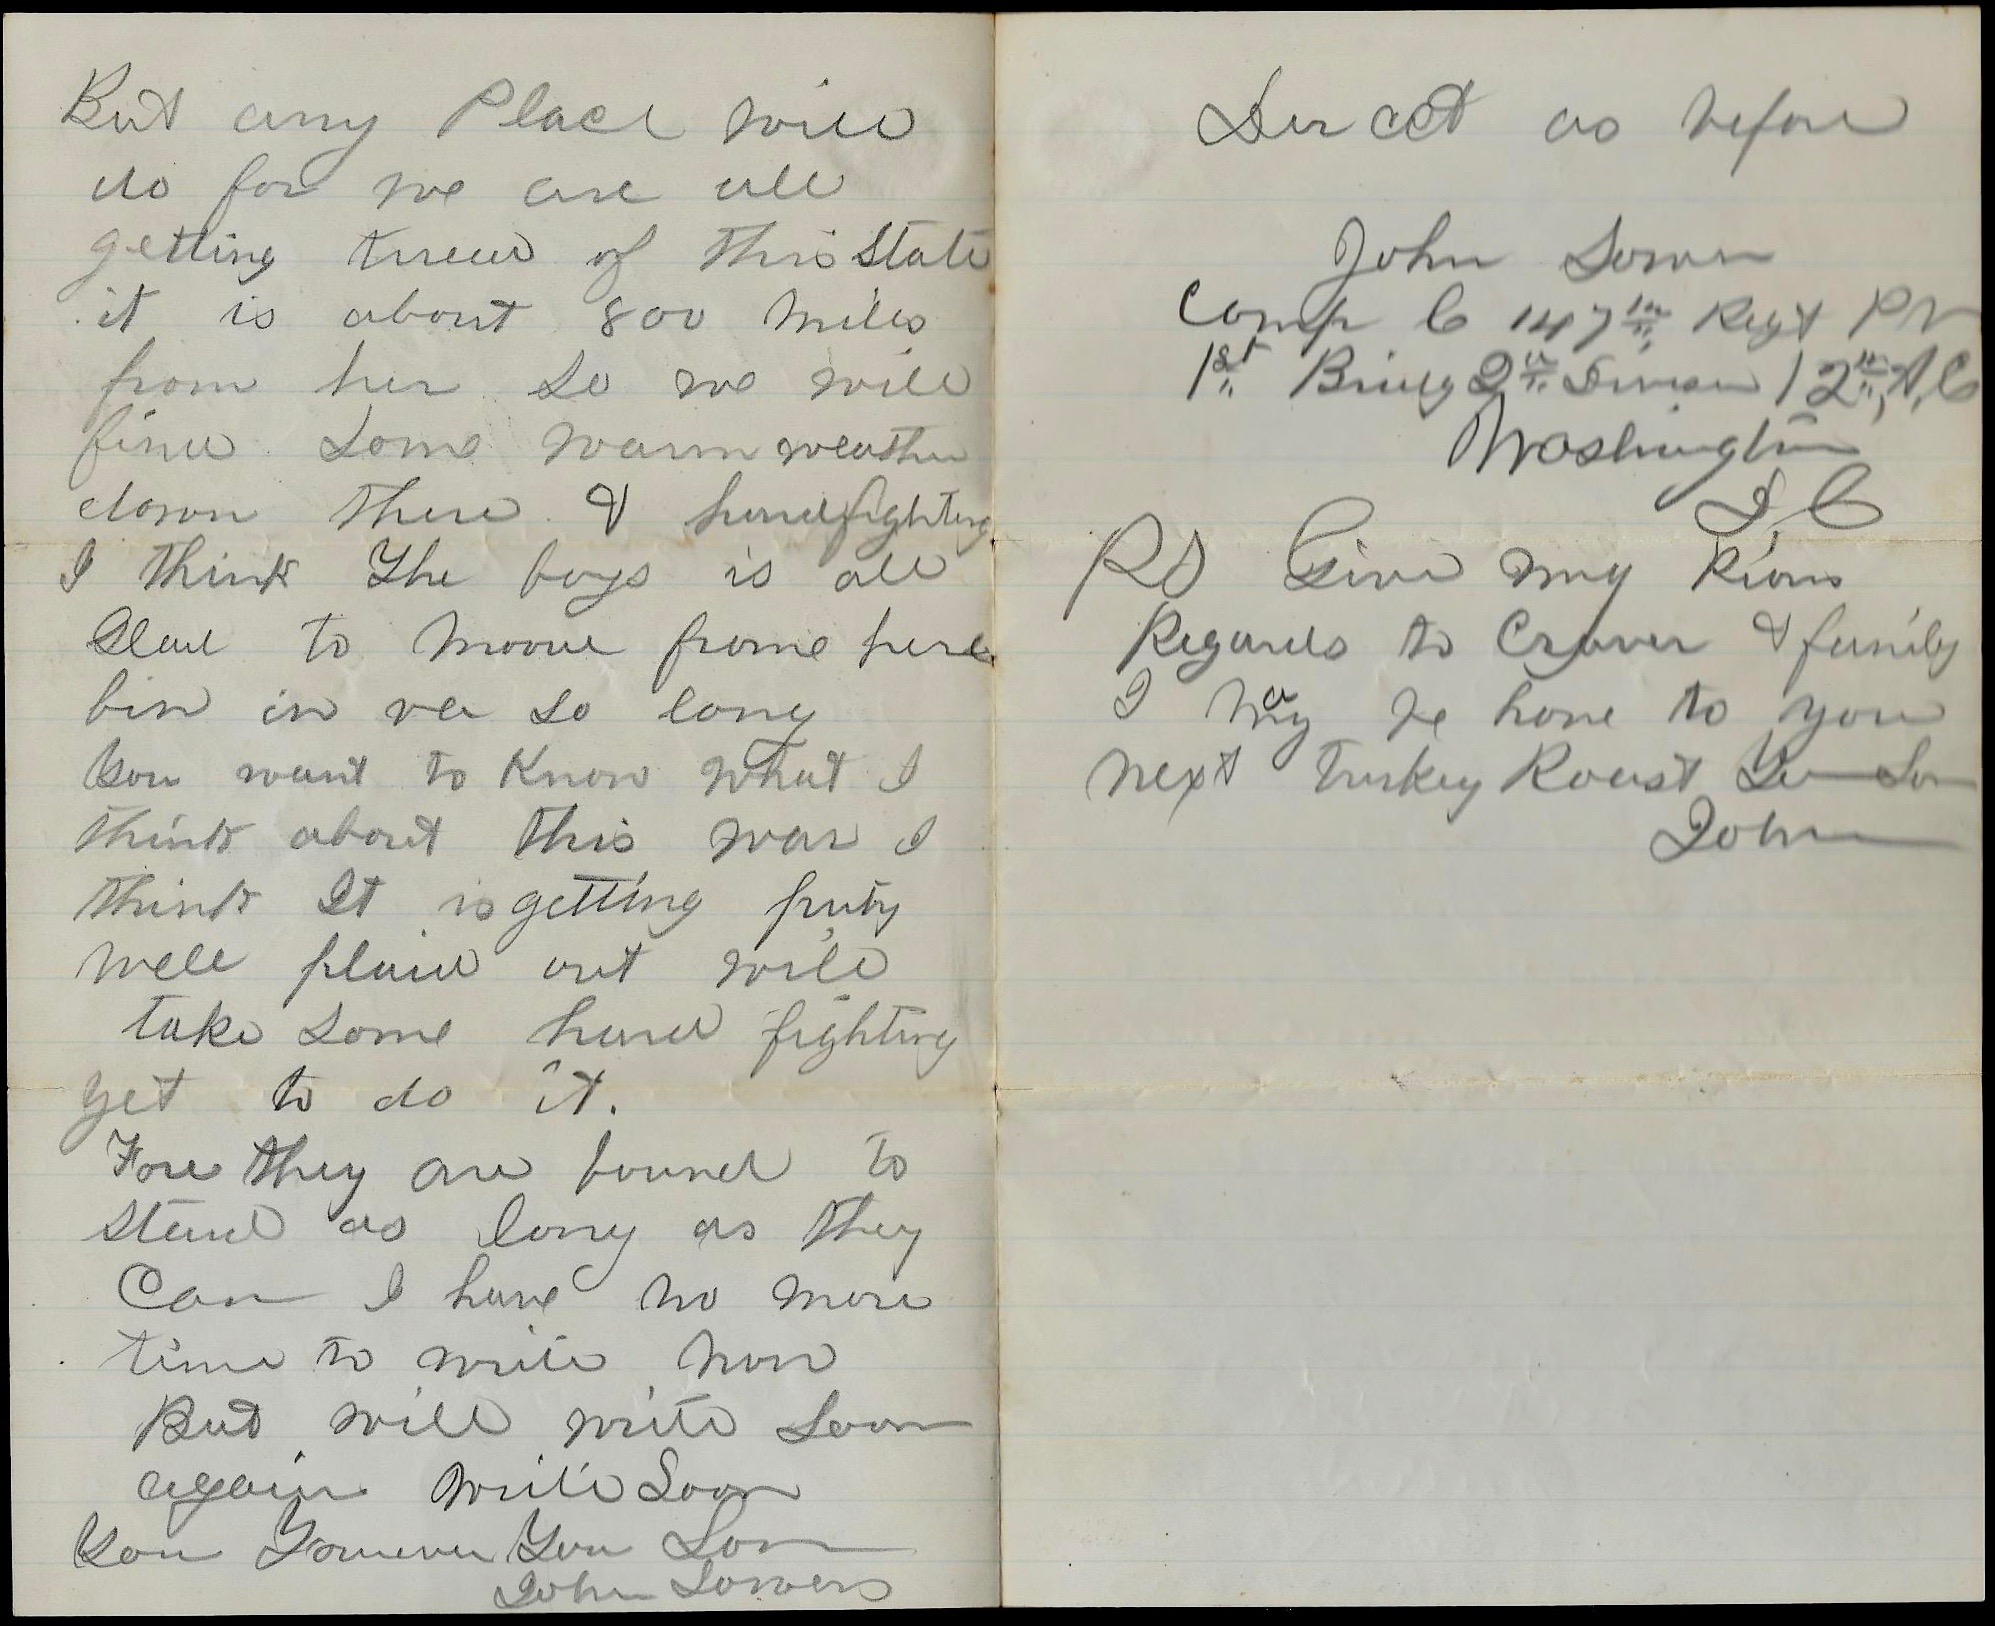 But any Place will
do for we are all
getting tired of this State
it is about 800 miles
from her So we will
find Some warm weather
down there & hardfighting
I think The boys is all
Glad to moove frome here
bin in va So long
You want to Know what I
think about this war I
think It is getting prity
well plaid out will
take Some hard fighting
yet to do it.
Fore they are bound to
Stand as long as they
Can I have no more
time to write now
But will write Soon
again write Soon
You You Son
John Sowers
Direct as before
John Sower
Comp C 147th Regt P V
1st Brig 2nd Divison 12th A, C
Washington
D, C
PS Give my Kind
Regards to Crover & family
I may be home to you
next turkey Roast You Son
John